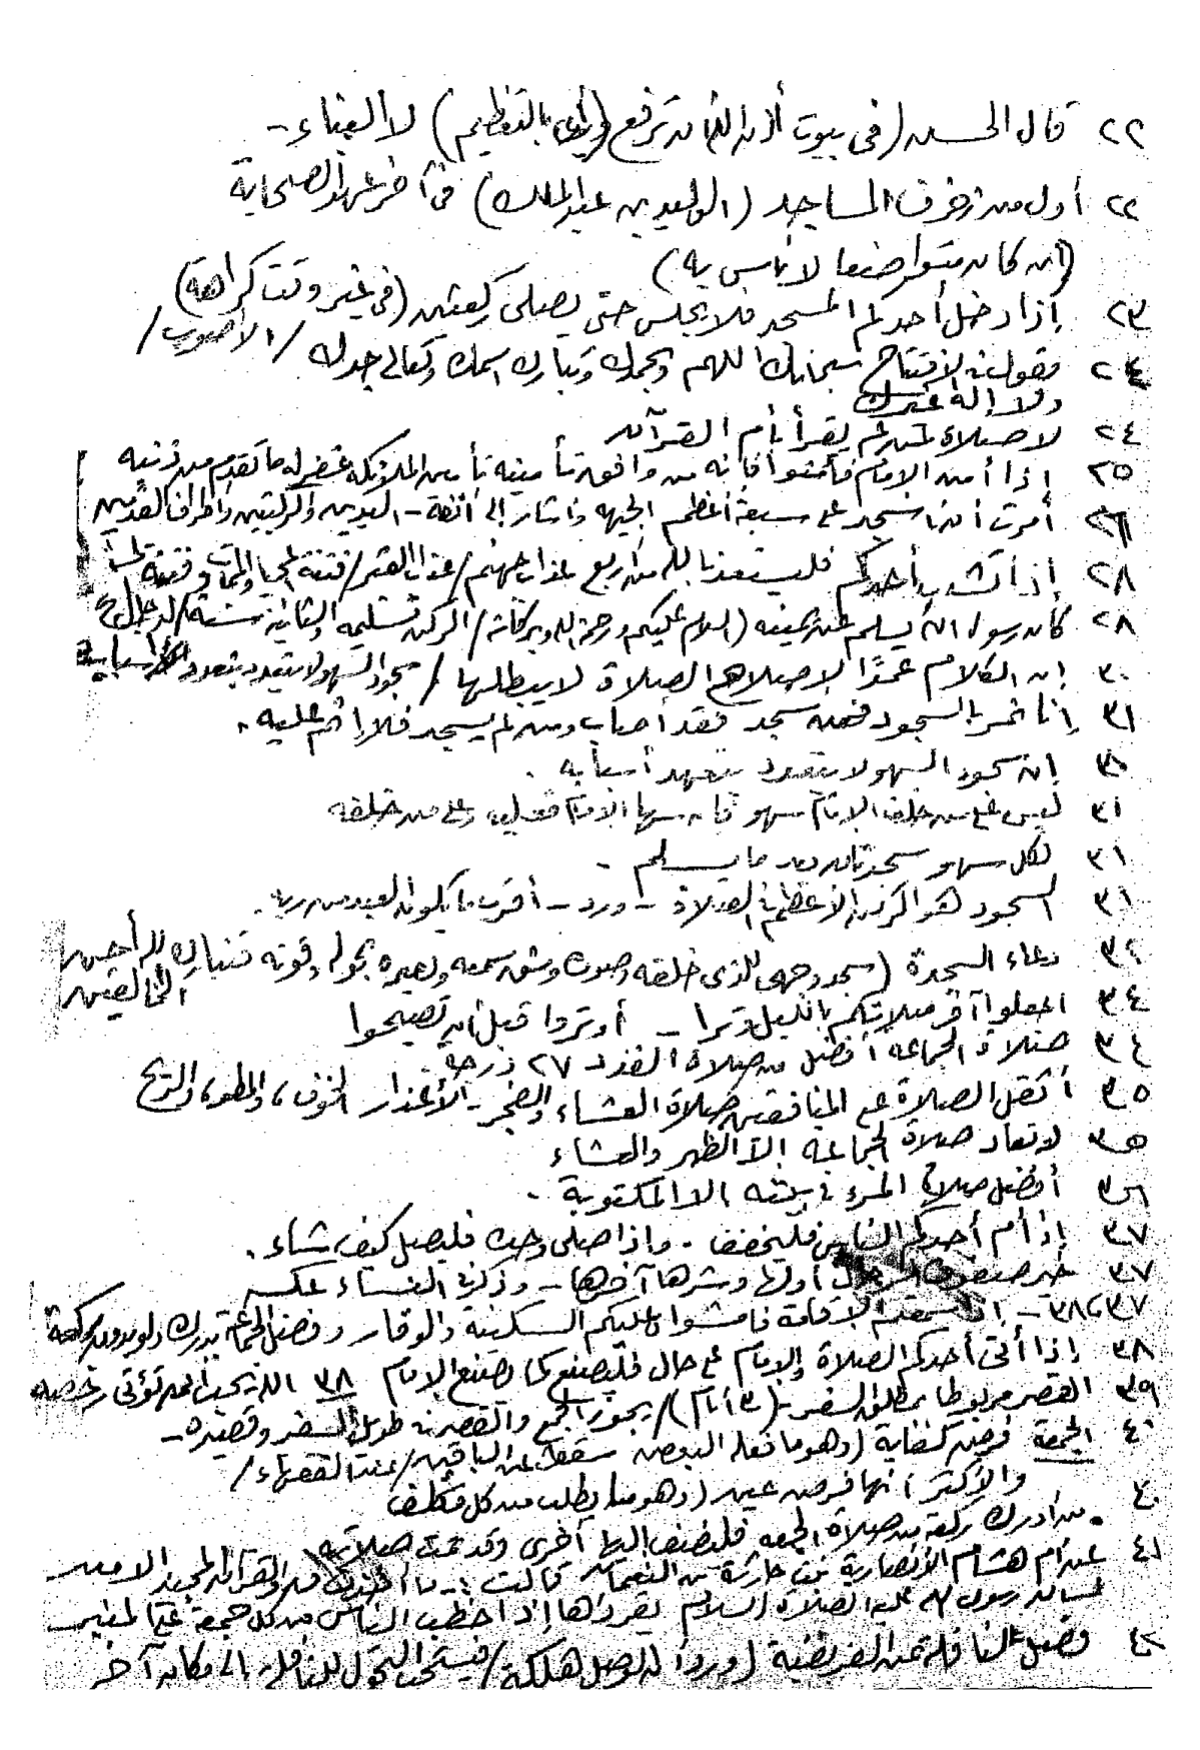 ٢٢ قال الحسن (في بيوت أذن الله أن ترفع (أي بالتعظيم) لا البناء -
٢٢ أول من زخرف المساجد (الوليد بن عبد الملك) في آخر عهد الصحابة
(إن كان متواضعا لا بأس به)
٢٣ إذا دخل أحدكم المسجد فلا يجلس حتى يصلي ركعتين (في غير وقت كراهة)
٢٤ فقول في الإفتتاح سبحانك اللهم وبحمدك وتبارك اسمك وتعالى جدك / الأصوب /
ولا إله غيرك
٢٤ لا صلاة لمن لم يقرأ بأم القرآن
٢٥ إذا أمن الإمام فأمنوا فإنه من وافق تأمينه تأمين الملائكة غفر له ما تقدم من ذنبه
٢٦ أمرت أن أسجد على سبعة أعظم الجبهه وأشار إلى أنفه - اليدين والركبتين وأطراف القدمين
٢٨ إذا تشهد أحدكم فليستعذ بالله من أربع عذاب جهنم / عذاب القبر / فتنة المحيا والممات وفتنة
٢٨ كان رسول الله يسلم عن يمينه (السلام عليكم ورحمة الله وبركاته / الركن تسليمه والثانية سنة
٣٠ إن الكلام عمدًا لإصلاح الصلاة لا يبطلها / سجود السهو لا يتعدد بتعدد أسبابه
٣١ إنا نمر بالسجود فمن سجد فقد أصاب ومن لم يسجد فلا إثم عليه .
٣٠ إن سجود السهو لا يتعدد بتعدد أسبابه .
٣١ ليس على من خلف الإمام سهو فإن سها الإمام فعليه وعلى من خلفه
٣١ لكل سهو سجدتان بعد ما يسلم -
٣١ السجود هو الركن الأعظم في الصلاة - ورد - أقرب ما يكون العبد من ربه .
٣٢ دعاء السجدة (سجد وجهي للذي خلقه وصوره وشق سمعه وبصره بحوله وقوته فتبارك الله أحسن
الخالقين
٣٤ اجعلوا آخر صلاتكم بالليل وترا - أوتروا قبل أن تصبحوا
٣٤ صلاة الجماعة أفضل من صلاة الفذ ٢٧ درجة
٣٥ أثقل الصلاة على المنافقين صلاة العشاء والفجر - الأعذار الخوف، والمطر، والريح
٣٥ لا تعاد صلاة الجماعه إلا الظهر والعشاء
٣٦ أفضل صلاة المرء في بيته إلا المكتوبة .
٣٧ إذا أم أحدكم الناس فليخفف . وإذا صلى وحده فليصل كيف شاء .
٣٧ خير صفوف الرجال أولها وشرها آخرها - وذكر في النساء عكسه
٣٧، ٣٨ - إذا سمعتم الإقامة فامشوا وعليكم السكينة والوقار وفضل الجماعة يدرك ولو بدون ركعة
٣٨ إذا أتى أحدكم الصلاة والإمام على حال فليصنع كما يصنع الإمام ٣٨ الله يحب أن تؤتى رخصه
٣٩ القصر مربوطا بمطلق السفر - (٣ أيام) / يجوز الجمع والقصر في طويل السفر وقصيره -
٤٠ الجمعة فرض كفاية (وهو ما فعله البعض سقط عن الباقين / عند الفقهاء /
والأكثر أنها فرض عين (وهو ما يطلب من كل مكلف
٤٠ من أدرك ركعة من صلاة الجمعه فليضف إليها أخرى وقد تمت صلاته
٤١ عن أم هشام الأنصارية بنت حارثة بن النعمان قالت :- ما أخذت ق والقرآن المجيد إلا من
لسان رسول الله عليه الصلاة والسلام يقرؤها إذا خطب الناس من كل جمعة على المنبر
٤٢ فصل النافلة عن الفريضة (ورد أن الوصل هلكة / فيستحب التحول للنافلة إلى مكان آخر